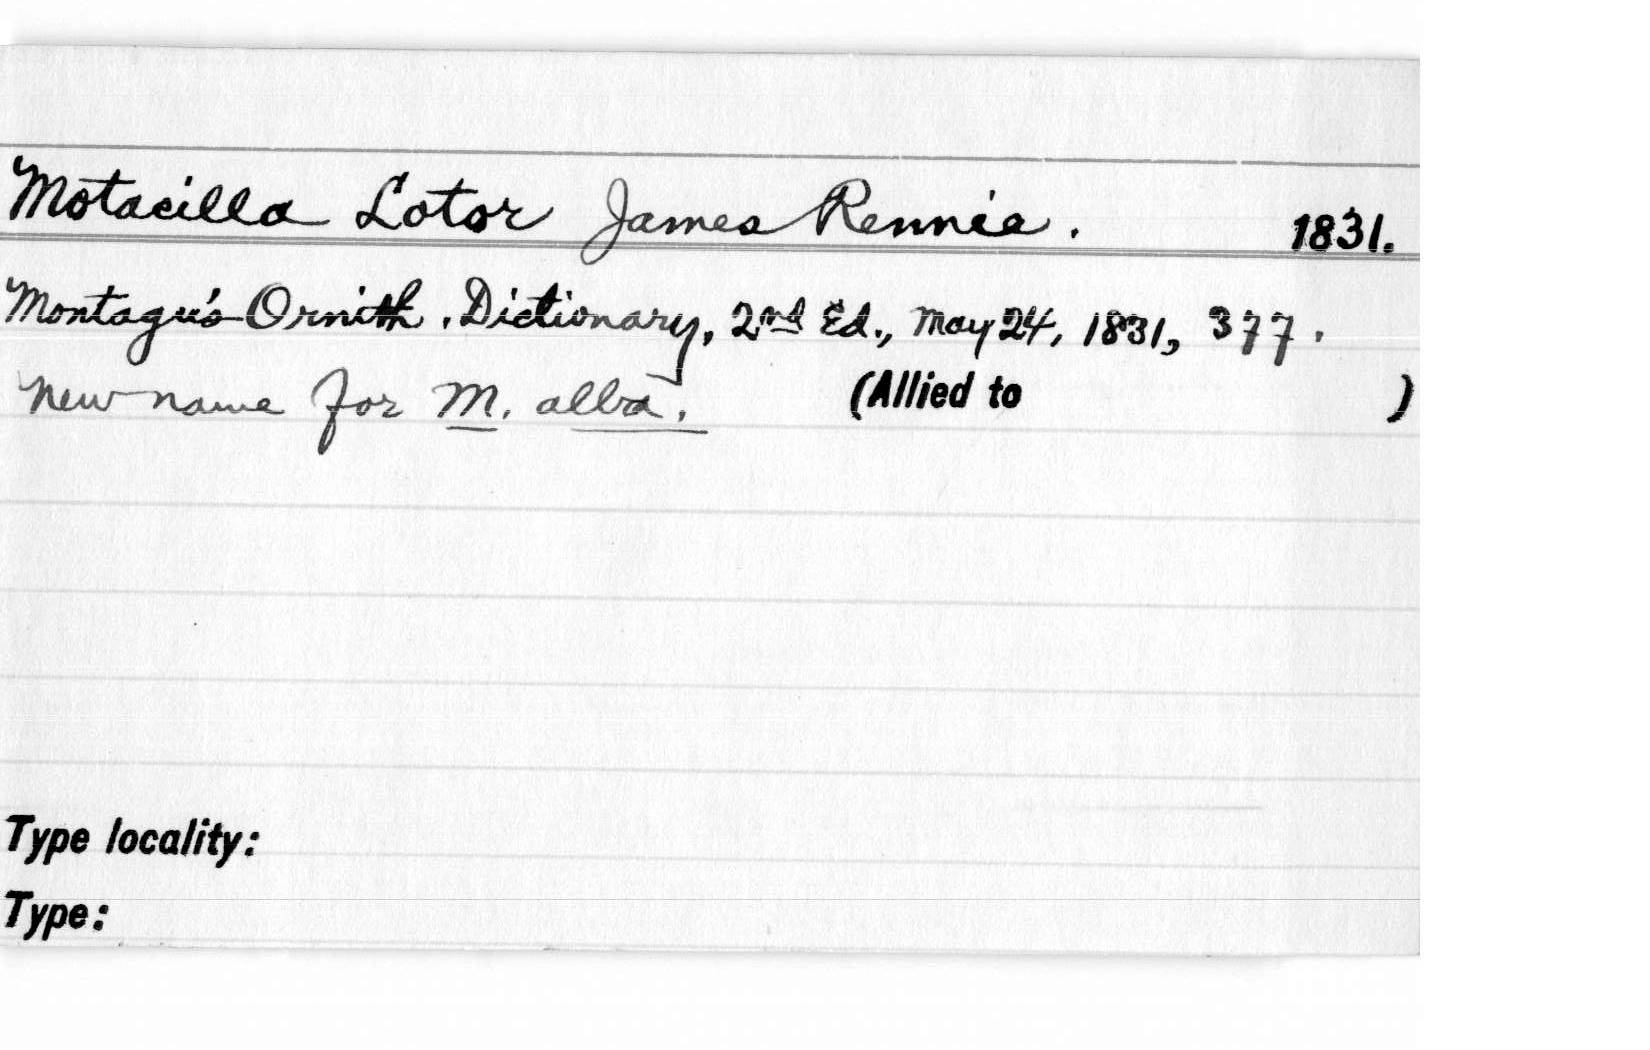 Motacilla Lotor James Rennie. 1831.
Montagu's Ornith. Dictionary, 2nd Ed., May 24, 1831, 377.
New name for M. alba. (Allied to )
Type locality:
Type: